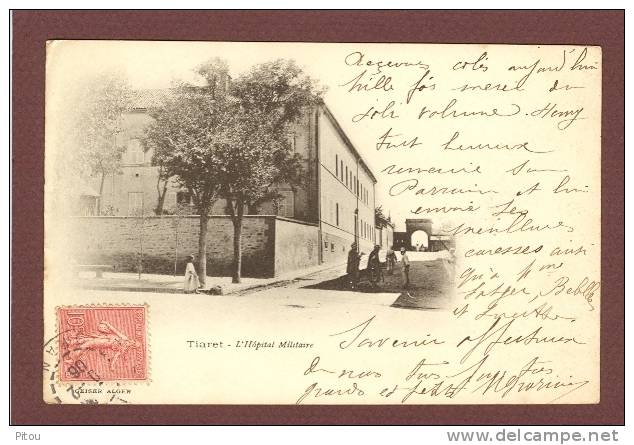 Recevons colis aujourd'hui
mille fois merci du
joli volume. Henry
tout heureux
remercie son
Parrain et lui
envoie ses
meilleures
caresses ainsi
qu'à Mme
Bébelle
et
Tiaret - L'Hôpital Militaire
Souvenir affectueux
de nous tous
grands et petits
10
GEISER ALGER
Pitou
www.delcampe.net